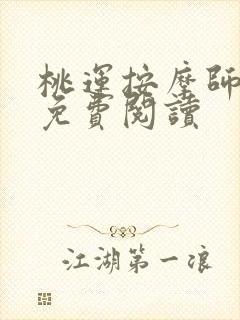 桃運按摩師
免費閱讀
江湖第一浪